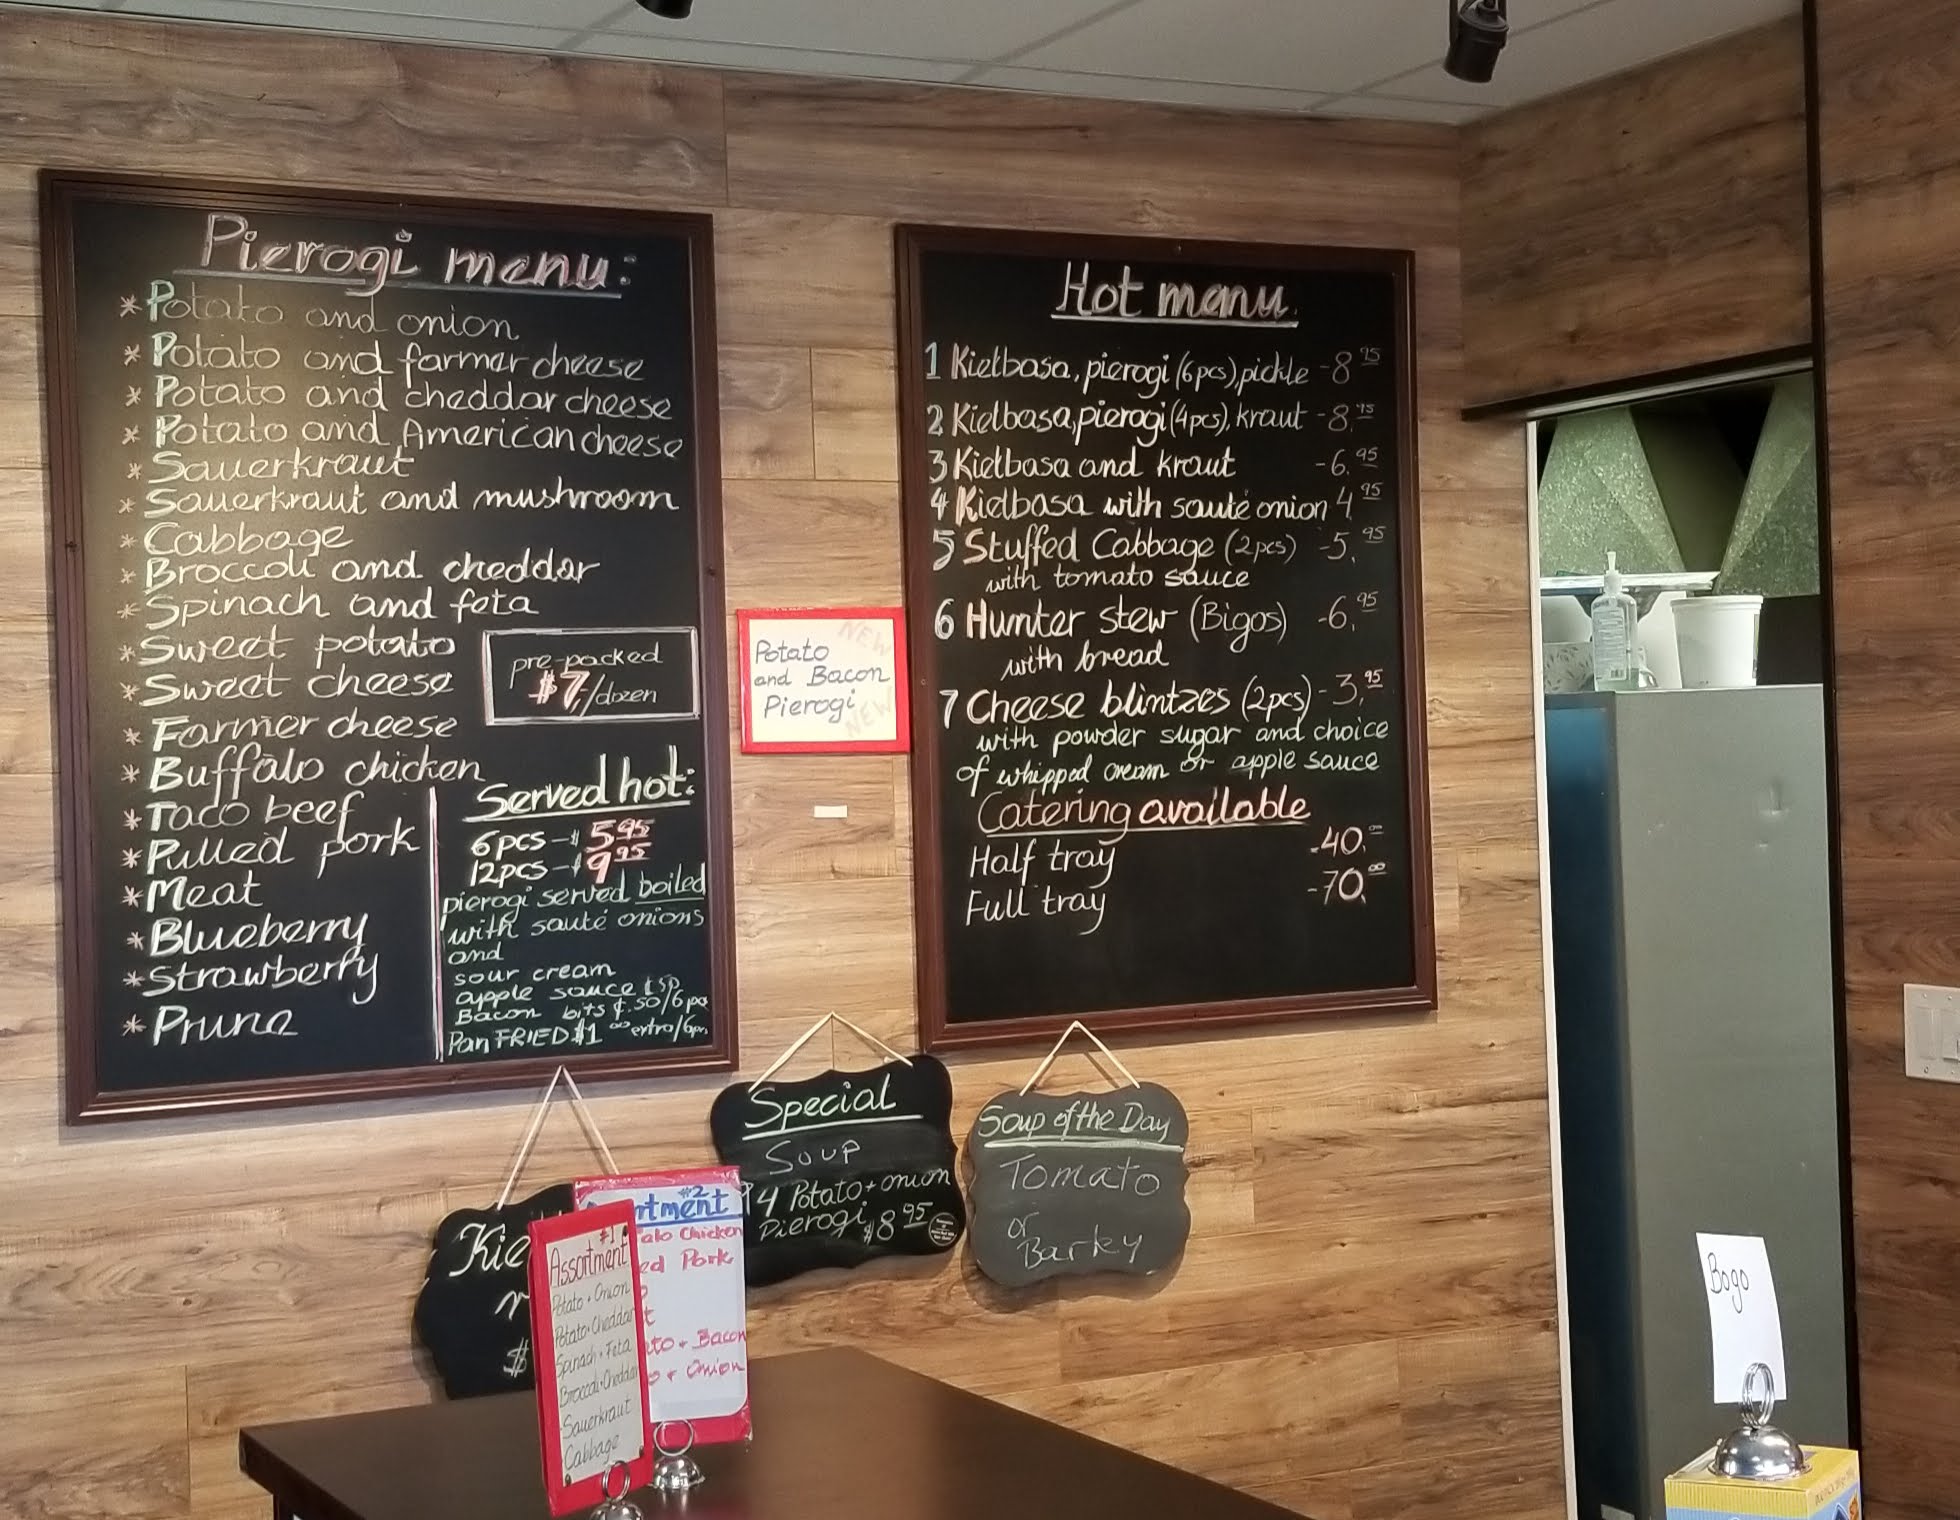 Pierogi menu:
* Potato and onion
* Potato and farmer cheese
* Potato and cheddar cheese
* Potato and American cheese
* Sauerkraut
* Sauerkraut and mushroom
* Cabbage
* Broccoli and cheddar
* Spinach and feta
* Sweet potato
* Sweet cheese
* Farmer cheese
* Buffalo chicken
* Taco beef
* Pulled pork
* Meat
* Blueberry
* Strawberry
* Prune
pre-packed
$7./dozen
Served hot:
6pcs - $5.95
12pcs - $9.95
pierogi served boiled
with sauté onions
and
sour cream
apple sauce
Bacon bits .50/6pcs
Pan FRIED $1.00 extra/6pc
NEW
Potato
and Bacon
Pierogi
NEW
Hot menu
1 Kiełbasa, pierogi (6pcs), pickle - 8.95
2 Kiełbasa, pierogi (4pcs), kraut - 8.95
3 Kiełbasa and kraut - 6.95
4 Kiełbasa with sauté onion 4.95
5 Stuffed Cabbage (2pcs) - 5.95
with tomato sauce
6 Hunter stew (Bigos) - 6.95
with bread
7 Cheese blintzes (2pcs) - 3.95
with powder sugar and choice
of whipped cream or apple sauce
Catering available
Half tray - 40.00
Full tray - 70.00
Special
Soup
4 Potato + onion
Pierogi $8.95
Soup of the Day
Tomato
or
Barley
Kie
$
#1
Assortment
Potato + Onion
Potato + Cheddar
Spinach + Feta
Broccoli + Cheddar
Sauerkraut
Cabbage
#2
rtment
alo Chicken
ed Pork
to + Bacon
o + Onion
Bogo